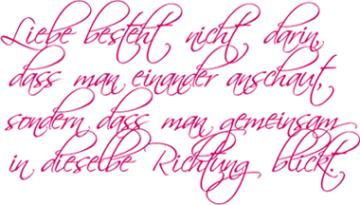 Liebe besteht nicht darin,
dass man einander anschaut,
sondern dass man gemeinsam
in dieselbe Richtung blickt.